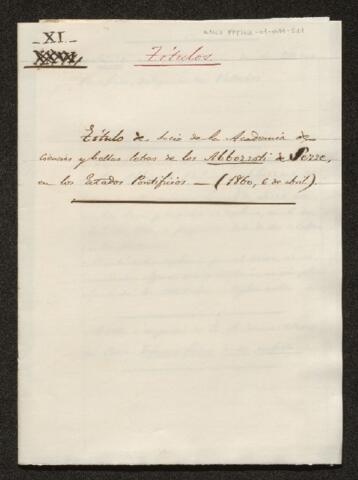 XI.
XXVI.
Títulos.
Título de socio de la Academia de
ciencias y bellas letras de los Abborroti de Serre,
en los Estados Pontificios — (1860, 6 de abril).